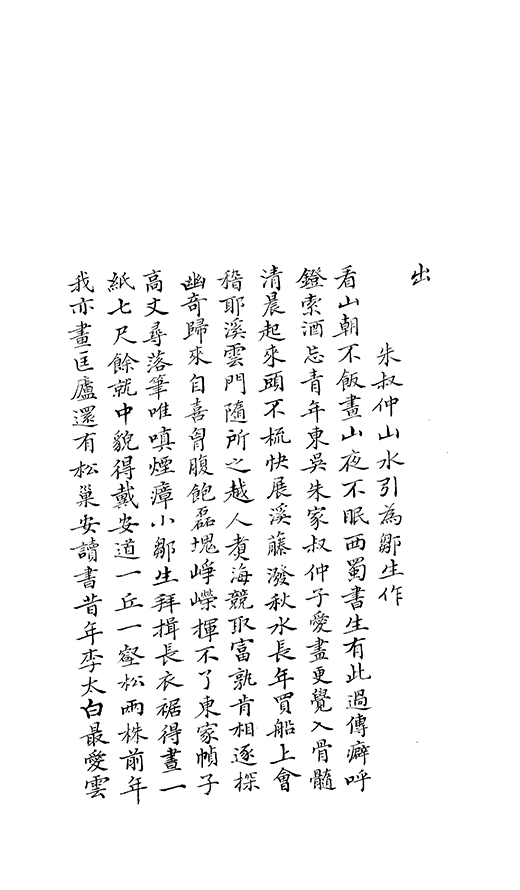 出
朱叔仲山水引為鄒生作
看山朝不飯畫山夜不眠西蜀書生有此過傳癖呼
鐙索酒忘青年東吳朱家叔仲子愛畫更覺入骨髓
清晨起來頭不梳快展溪藤潑秋水長年買船上會
稽耶溪雲門隨所之越人煑海競取富孰肯相逐探
幽奇歸來自喜胷腹飽磊塊崢嶸揮不了東家幀子
高丈尋落筆唯嗔煙瘴小鄒生拜揖長衣裾得畫一
紙七尺餘就中貌得戴安道一丘一壑松兩株前年
我亦畫匡廬還有松巢安讀書昔年李太白最愛雲